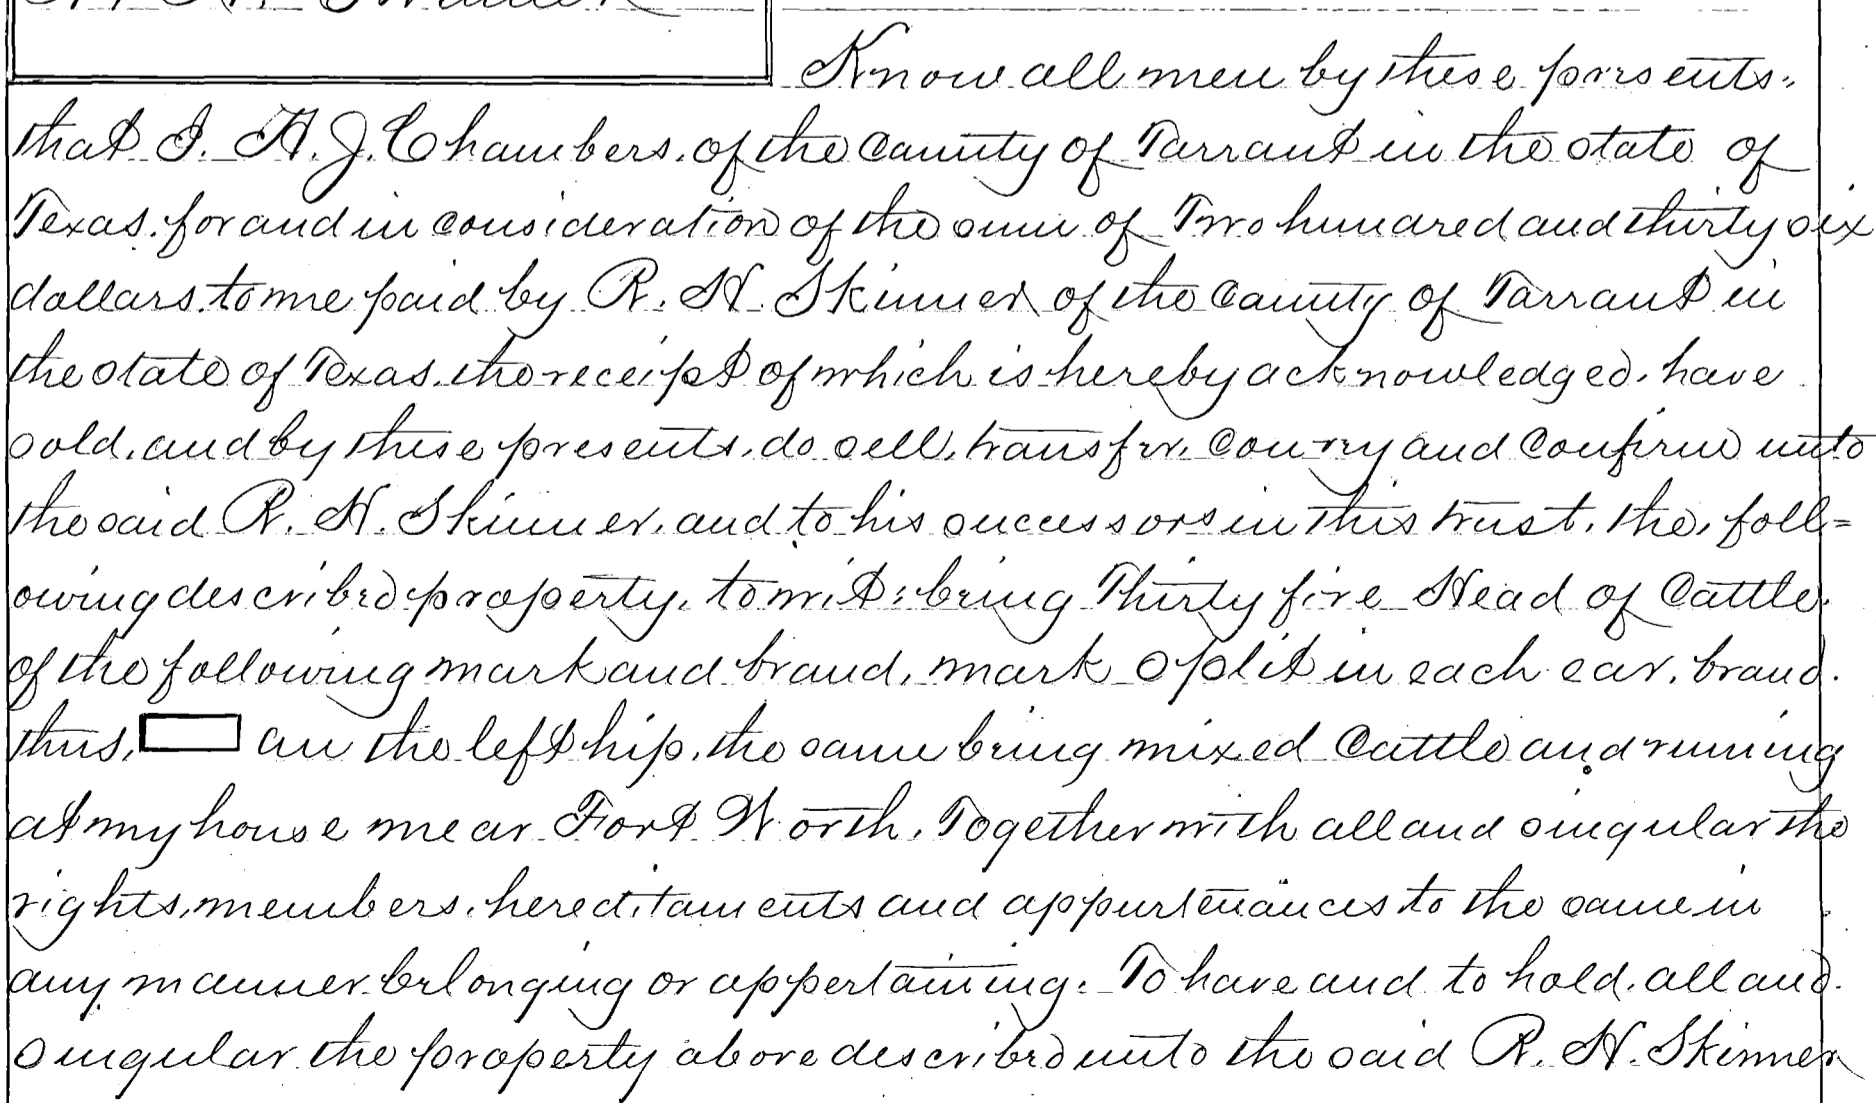 Know all men by these presents,
that I. A. J. Chambers, of the County of Tarrant in the state of
Texas, for and in consideration of the sum of Two hundred and thirty six
dollars, to me paid by R. H. Skinner of the County of Tarrant in
the state of Texas, the receipt of which is hereby acknowledged, have
sold, and by these presents, do sell, transfer, Convey and Confirm unto
the said R. H. Skinner, and to his successors in this trust, the, foll=
owing described property, to wit: being Thirty five Head of Cattle,
of the following mark and brand, mark split in each ear, brand.
thus, on the left hip, the same being mixed Cattle and running
at my house near Fort Worth, Together with all and singular the
rights, members, hereditaments and appurtenances to the same in
any manner belonging or appertaining: To have and to hold, all and
singular the property above described unto the said R. H. Skinner